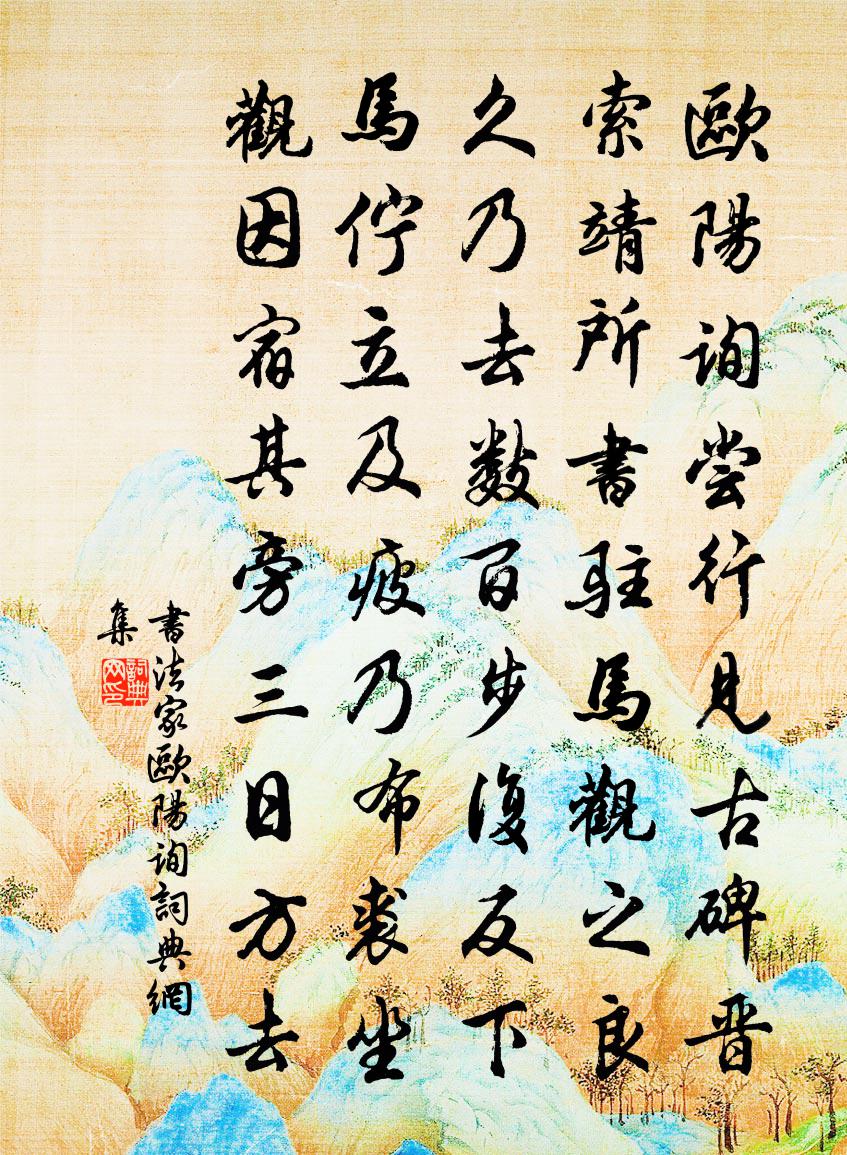 歐陽詢尝行見古碑晋
索靖所書駐馬觀之良
久乃去数百步復反下
馬佇立及疲乃布裘坐
觀因宿其旁三日方去
書法家歐陽詢詞典網
集
詞典
网印